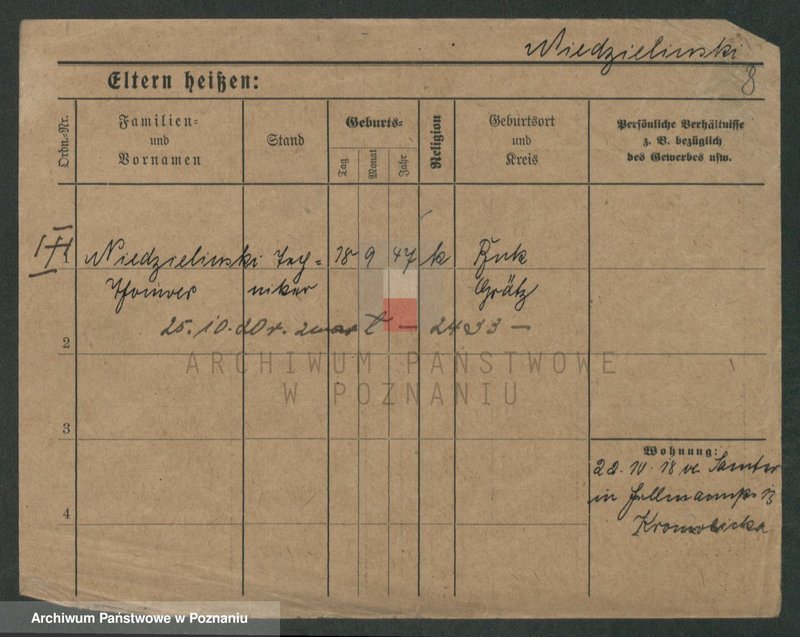 Niedzielinski
8
Eltern heißen:
Ordn.-Nr.
Familien-
und
Vornamen
Stand
Geburts-
Tag
Monat
Jahr
Religion
Geburtsort
und
Kreis
Persönliche Verhältnisse
z. B. bezüglich
des Gewerbes usw.
Niedzielinski Tech- 18 9 47 k Buk
niker Grätz
25.10.20 r. zmarł — 2433 —
2
3
4
Wohnung:
22.IV.18 v. Samter
in
ARCHIWUM PAŃSTWOWE
W POZNANIU
Archiwum Państwowe w Poznaniu